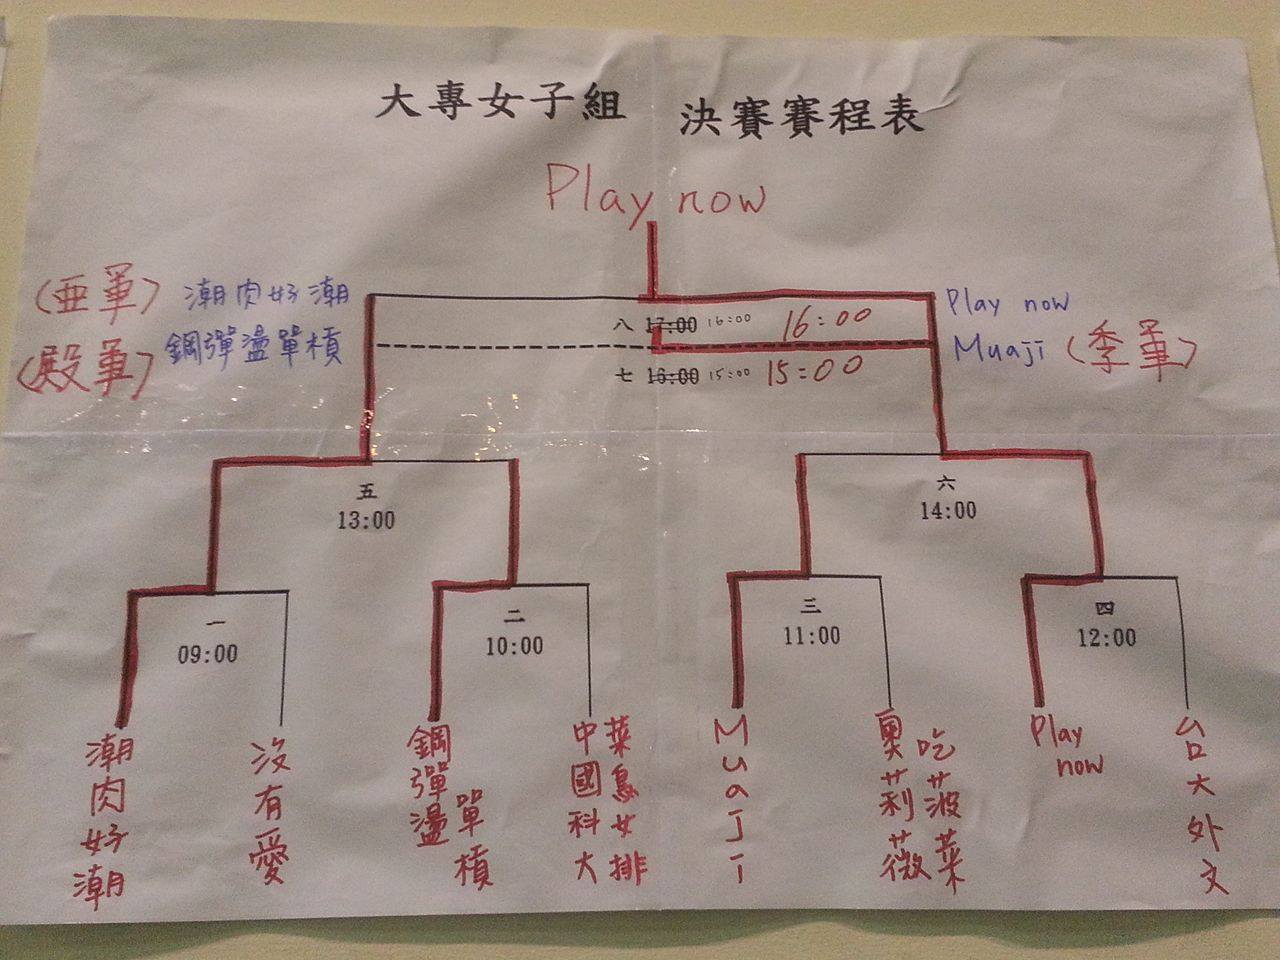 大專女子組 決賽賽程表
Play now
(亜軍) 潮肉好潮
Play now
八 17:00 16:00 16:00
(殿軍) 鋼彈盪單槓
Muaji (季軍)
七 16:00 15:00 15:00
五
13:00
六
14:00
一
09:00
二
10:00
三
11:00
四
12:00
潮肉好潮
沒有愛
鋼彈盪單槓
中國科大
菜鳥女排
MuaJi
奧莉薇
吃菠菜
Play now
台大外文